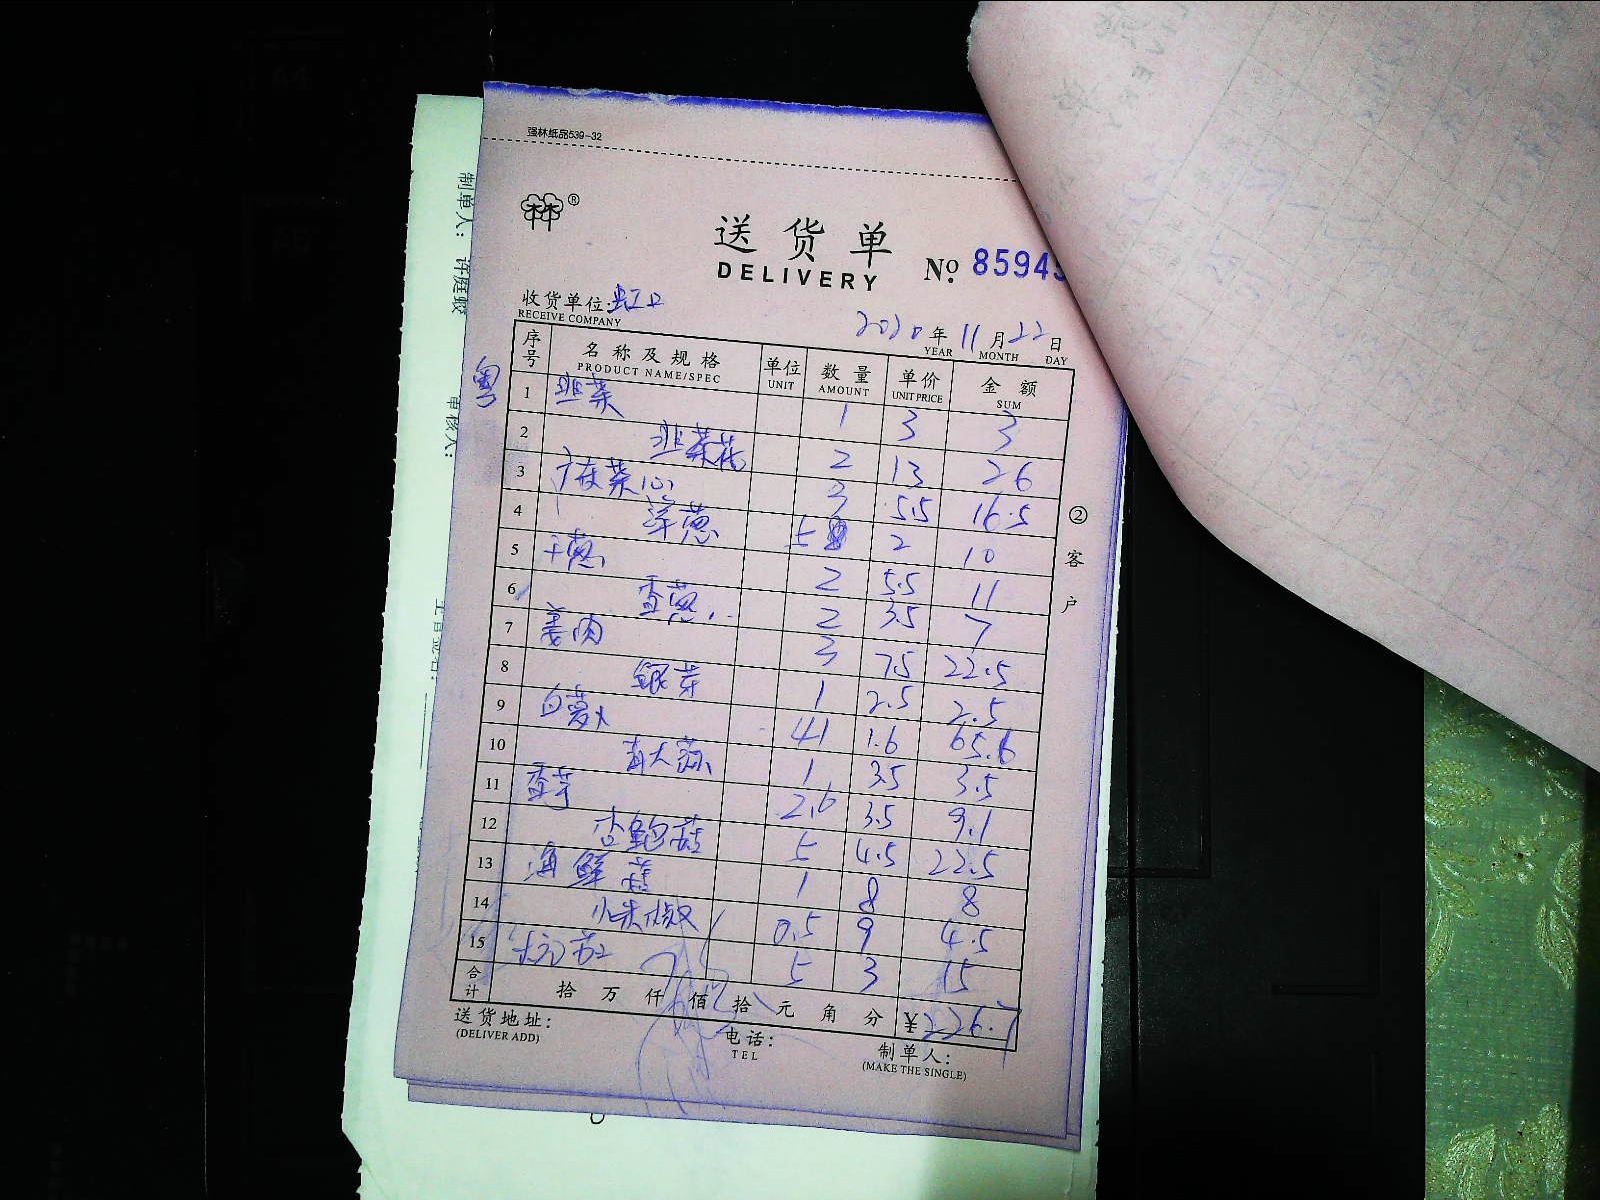 强林纸品539-32
林®
送货单
DELIVERY
No. 85945
收货单位:虹口
RECEIVE COMPANY
2020年11月22日
YEAR MONTH DAY
粤
序号 名称及规格 单位 数量 单价 金额
PRODUCT NAME/SPEC UNIT AMOUNT UNIT PRICE SUM
1 韭菜 1 3 3
2 韭菜花 2 13 26
3 广东菜心 3 5.5 16.5
4 洋葱 5 2 10
5 干葱 2 5.5 11
6 香葱 2 3.5 7
7 姜肉 3 7.5 22.5
8 银芽 1 2.5 2.5
9 白萝卜 41 1.6 65.6
10 青大蒜 1 3.5 3.5
11 香芹 2.6 3.5 9.1
12 杏鲍菇 5 4.5 22.5
13 海鲜菇 1 8 8
14 小米椒 0.5 9 4.5
15 5 3 15
合计 拾 万 仟 佰 拾 元 角 分 ¥226.7
送货地址:
(DELIVER ADD)
电话:
TEL
制单人:
(MAKE THE SINGLE)
②客户
制单人: 许庭
审核人: